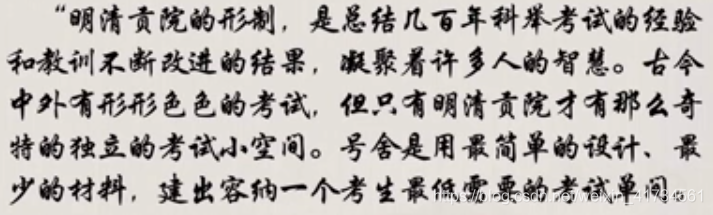 “明清贡院的形制，是总结几百年科举考试的经验
和教训不断改进的结果，凝聚着许多人的智慧。古今
中外有形形色色的考试，但只有明清贡院才有那么奇
特的独立的考试小空间。号舍是用最简单的设计、最
少的材料，建出容纳一个考生最低需要的考试单间
https://blog.csdn.net/weixin_41794661